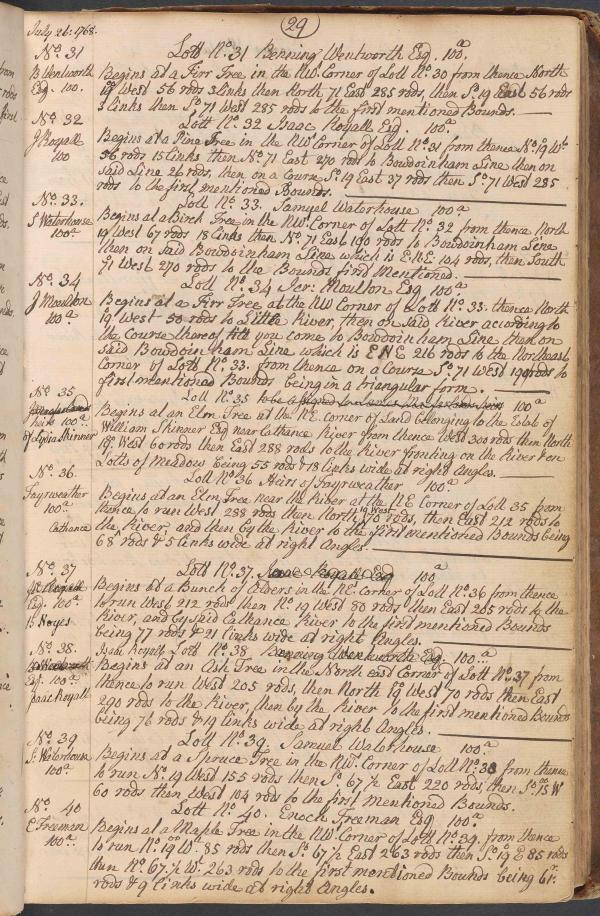 29
July 26: 1768.
No. 31
B Wentworth
Esq. 100.
Lott No. 31 Benning Wentworth Esq. 100a.
Begins at a Firr Tree in the NW. Corner of Lott No. 30 from thence North
19 West 56 rods 3 links then North 71 East 285 rods, then So. 19 East 56 rods
3 links then So. 71 West 285 rods to the first mentioned Bounds.
No. 32
J Royall
100
Lott No. 32 Isaac Royall Esq. 100a.
Begins at a Pine Tree in the NW Corner of Lott No. 31 from thence No. 19 Wt.
56 rods 15 links then No. 71 East 270 rods to Bowdoinham Line then on
said Line 26 rods, then on a Course So. 19 East 37 rods then So. 71 West 285
rods to the first mentioned Bounds.
No. 33.
S Waterhouse
100a.
Lott No. 33. Samuel Waterhouse 100a
Begins at a Birch Tree in the NW. Corner of Lott No. 32 from thence North
19 West 67 rods 18 links then No. 71 East 190 rods to Bowdoinham Line
then on said Bowdoinham Line which is ENE 104 rods, then South
71 West 270 rods to the Bounds first Mentioned.
No. 34
J Moulton
100a.
Lott No. 34 Jer: Moulton Esq 100a
Begins at a Firr Tree at the NW Corner of Lott No. 33. thence North
19 West 50 rods to Little River, then on said River according to
the Course thereof till you come to Bowdoinham Line then on
said Bowdoinham Line which is ENE 216 rods to the Northeast
Corner of Lott No. 33. from thence on a Course So. 71 West 190 rods to
first mentioned Bounds being in a triangular form.
No. 35
heirs 100a.
of Lydia Skinner
Lott No. 35 100 a
Begins at an Elm Tree at the NE. Corner of Land belonging to the Estate of
William Skinner Esq near Cathance River from thence West 300 rods then North
19 West 60 rods then East 288 rods to the River fronting on the River & on
Lotts of Meadow being 55 rods & 18 links wide at right Angles.
No. 36
Fayrweather
100a.
Cathance
Lott No 36 Heirs of Fayrweather 100a.
Begins at an Elm Tree near the River at the NE Corner of Lott 35 from
thence to run West 288 rods then North 19 West 70 rods, then East 212 rods to
the River, and then by the River to the first mentioned Bounds being
68 rods & 5 links wide at right Angles.
No. 37
Esq. 100a.
B Noyes
Lott No. 37. Isaac Royall Esq 100a
Begins at a Bunch of Alders in the NE. Corner of Lott No. 36 from thence
to run West 212 rods then No. 19 West 80 rods then East 205 rods to the
River, and by said Cathance River to the first mentioned Bounds
being 77 rods & 21 links wide at right Angles.
No. 38.
Esq. 100a
Isaac Royall
Isaac Royall Lott No. 38. Benning Wentworth Esq. 100a.
Begins at an Ash Tree in the North east Corner of Lott No. 37 from
thence to run West 205 rods, then North 19 West 70 rods then East
290 rods to the River, then by the River to the first mentioned Bounds
being 76 rods & 19 links wide at right Angles.
No. 39
S: Waterhouse
100a.
Lott No. 39. Samuel Waterhouse 100a
Begins at a Spruce Tree in the NW. Corner of Lott No. 38 from thence
to run No. 19 West 155 rods then So. 67 1/2 East 220 rods, then So. 15 W
60 rods then West 104 rods to the first Mentioned Bounds.
No. 40
E Freeman
100a.
Lott No. 40. Enoch Freeman Esq 100a
Begins at a Maple Tree in the NW. Corner of Lott No. 39. from thence
to run No. 19 Wt. 85 rods then So. 67 1/2 East 263 rods then So. 19 E 85 rods
then No. 67. 1/2 Wt. 263 rods to the first mentioned Bounds being 61.
rods & 9 links wide at right Angles.